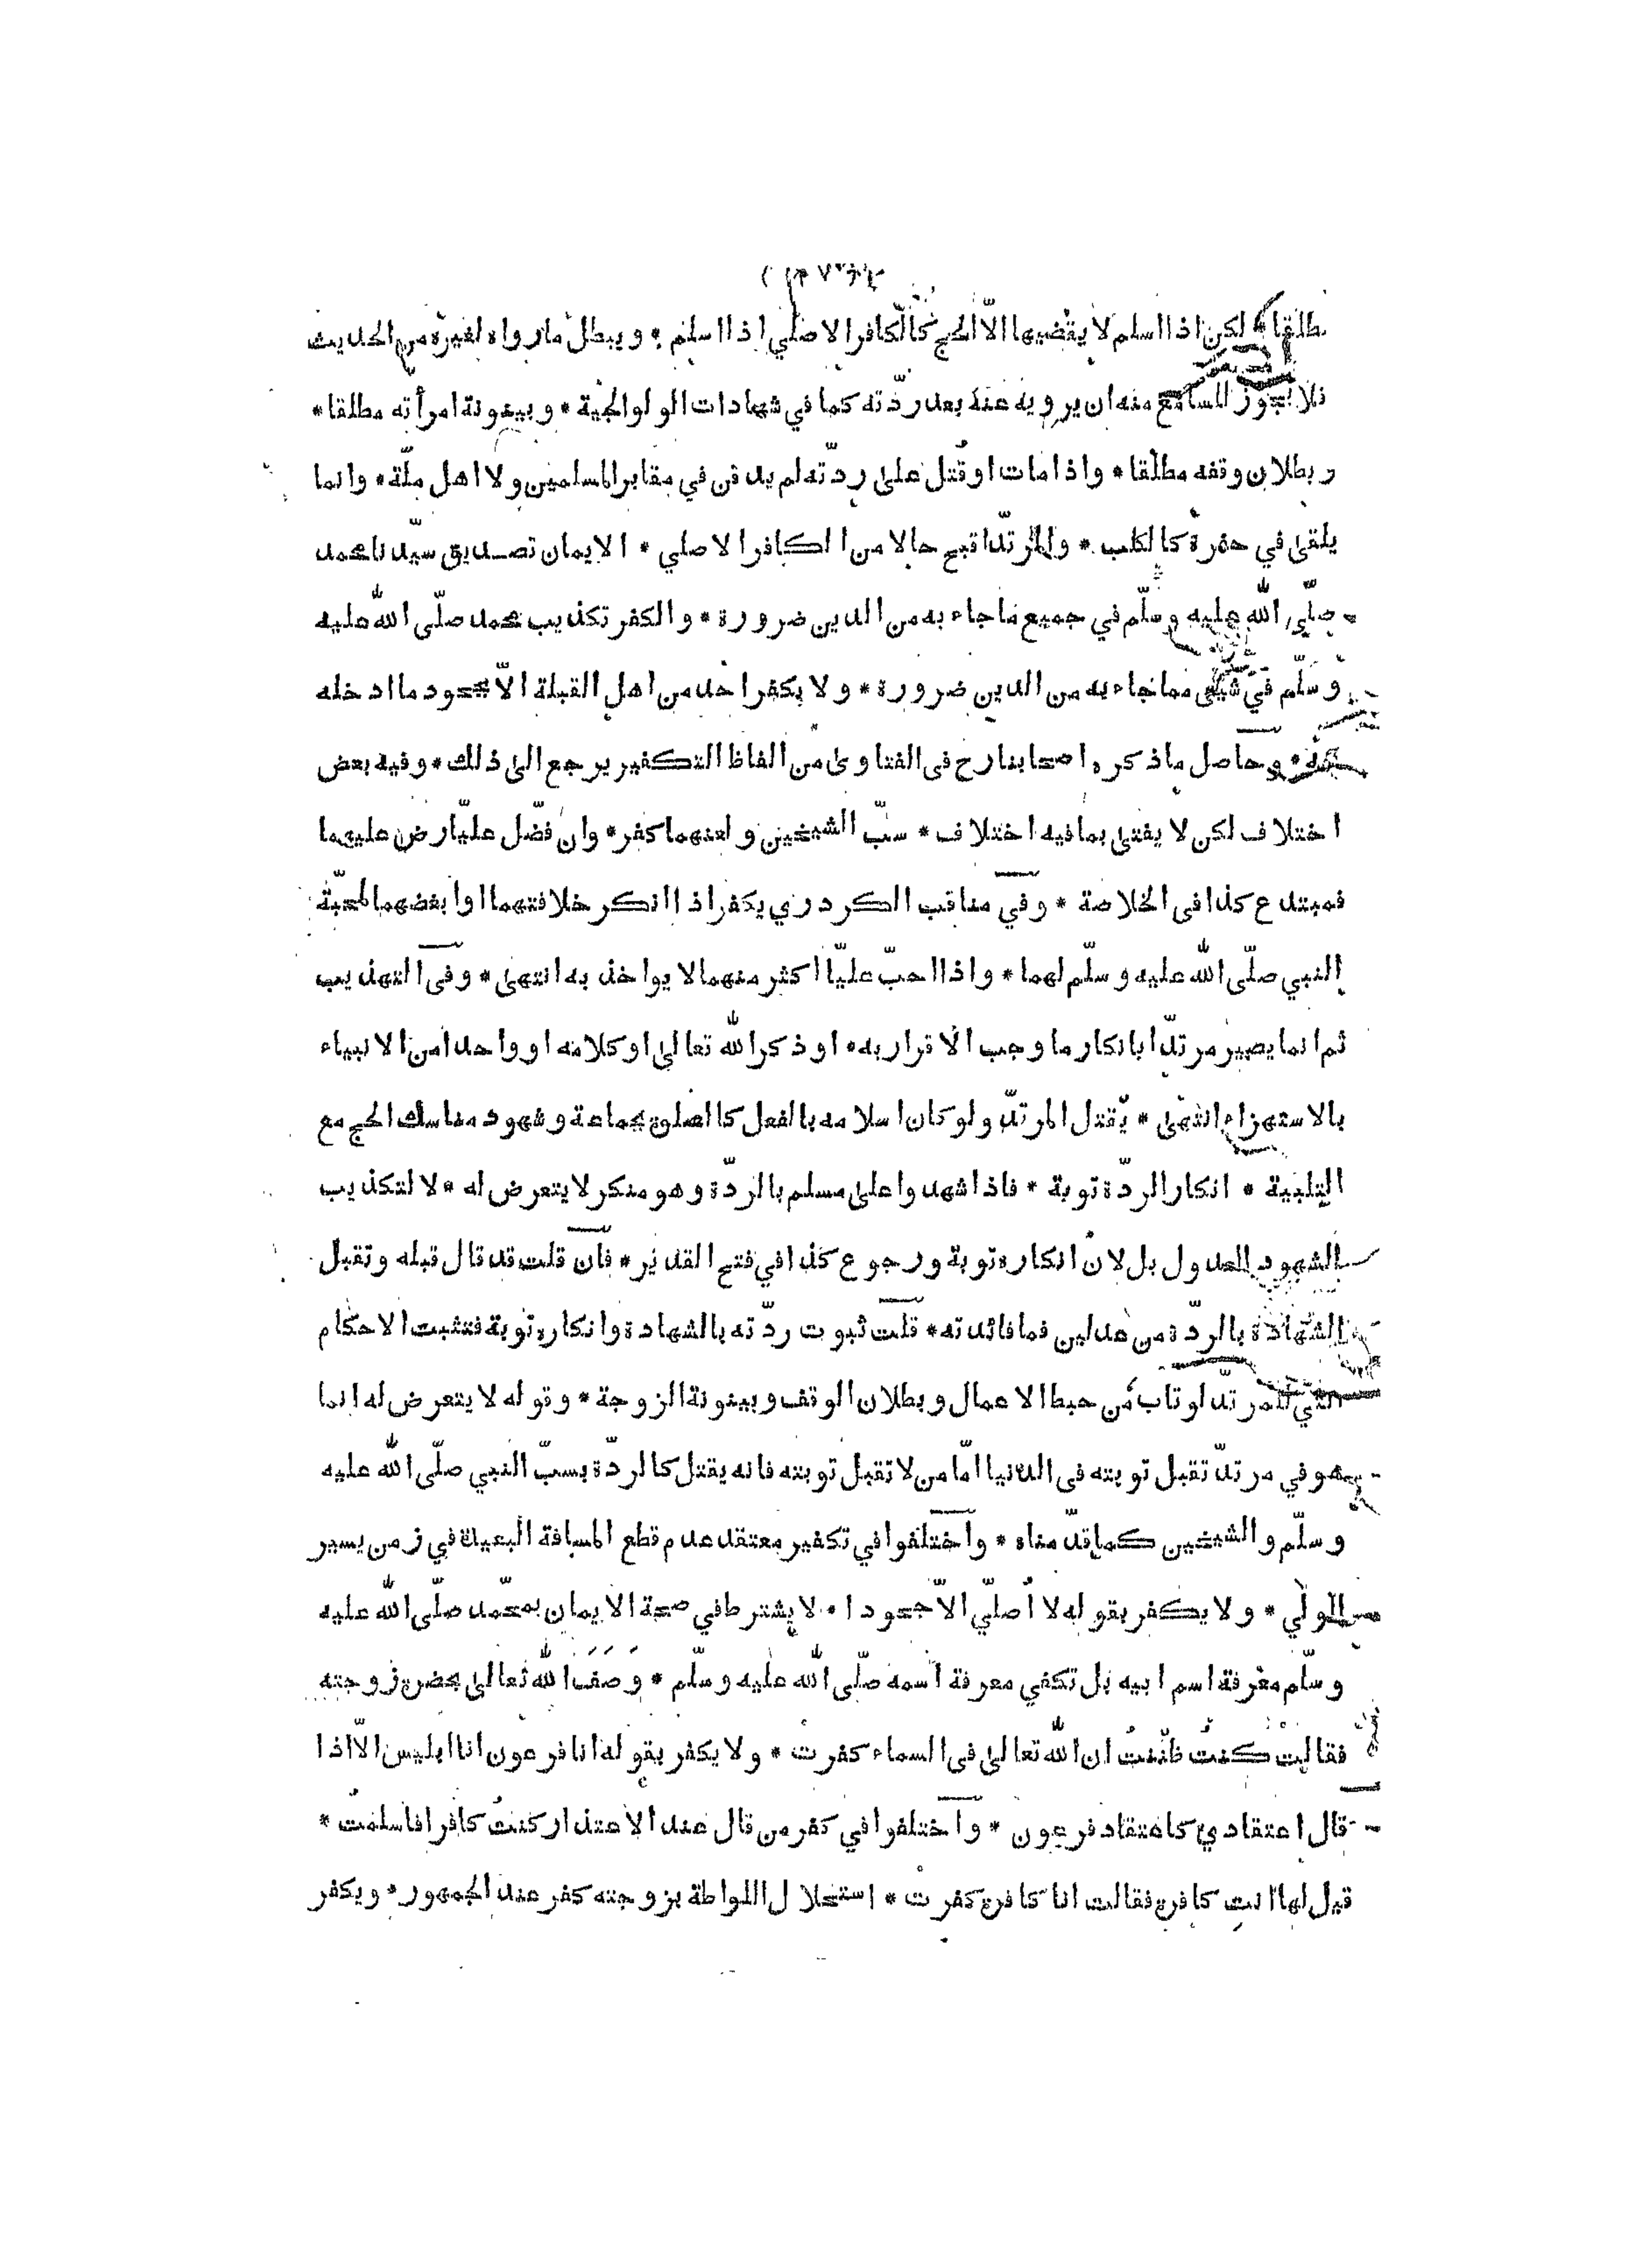 مطلقا * لكن اذا اسلم لا يقضيها الّا الحج كالكافر الاصلي اذا اسلم * ويبطل ما رواه لغيره من الحديث
فلا يجوز للسامع منه ان يرويه عنه بعد ردّته كما في شهادات الولوالجية * وبينونة امرأته مطلقا *
وبطلان وقفه مطلقا * واذا مات او قُتل على ردّته لم يدفن في مقابر المسلمين ولا اهل ملّة * وانما
يلقى في حفرة كالكلب * والمرتدّ اقبح حالا من الكافر الاصلي * الايمان تصديق سيّدنا محمد
صلّى الله عليه وسلّم في جميع ما جاء به من الدين ضرورة * والكفر تكذيب محمد صلّى الله عليه
وسلّم في شيئ مما جاء به من الدين ضرورة * ولا يكفر احد من اهل القبلة الّا بجحود ما ادخله
فيه * وحاصل ما ذكره اصحابنا رح فى الفتاوى من الفاظ التكفير يرجع الى ذلك * وفيه بعض
اختلاف لكن لا يفتى بما فيه اختلاف * سبّ الشيخين ولعنهما كفر * وان فضّل عليّا رض عليهما
فمبتدع كذا فى الخلاصة * وفي مناقب الكردري يكفر اذا انكر خلافتهما او ابغضهما لمحبّة
النبي صلّى الله عليه وسلّم لهما * واذا احبّ عليّا اكثر منهما لا يواخذ به انتهى * وفى التهذيب
ثم انما يصير مرتدّا بانكار ما وجب الاقرار به * او ذكر الله تعالى او كلامه او واحدا من الانبياء
بالاستهزاء انتهى * يُقتل المرتدّ ولو كان اسلامه بالفعل كالصلوة بجماعة وشهود مناسك الحج مع
التلبية * انكار الردّة توبة * فاذا شهدوا على مسلم بالردّة وهو منكر لا يتعرض له * لا لتكذيب
الشهود العدول بل لان انكاره توبة ورجوع كذا في فتح القدير * فان قلت قد قال قبله وتقبل
الشهادة بالردّة من عدلين فما فائدته * قلت ثبوت ردّته بالشهادة وانكاره توبة فتثبت الاحكام
التي للمرتدّ لو تاب من حبط الاعمال وبطلان الوقف وبينونة الزوجة * وقوله لا يتعرض له انما
هو في مرتدّ تقبل توبته فى الدنيا امّا من لا تقبل توبته فانه يقتل كالردّة بسبّ النبي صلّى الله عليه
وسلّم والشيخين كما قدّمناه * واختلفوا في تكفير معتقد عدم قطع المسافة البعيدة في زمن يسير
للولي * ولا يكفر بقوله لا اصلّي الّا جحودا * لا يشترط في صحة الايمان بمحمّد صلّى الله عليه
وسلّم معرفة اسم ابيه بل تكفي معرفة اسمه صلّى الله عليه وسلّم * وَصَفَ الله تعالى بحضرة زوجته
فقالت كنتُ ظننتُ ان الله تعالى فى السماء كفرت * ولا يكفر بقوله انا فرعون انا ابليس الّا اذا
قال اعتقادي كاعتقاد فرعون * واختلفوا في كفر من قال عند الاعتذار كنتُ كافرا فاسلمتُ *
قيل لها انتِ كافرة فقالت انا كافرة كفرت * استحلال اللواطة بزوجته كفر عند الجمهور * ويكفر